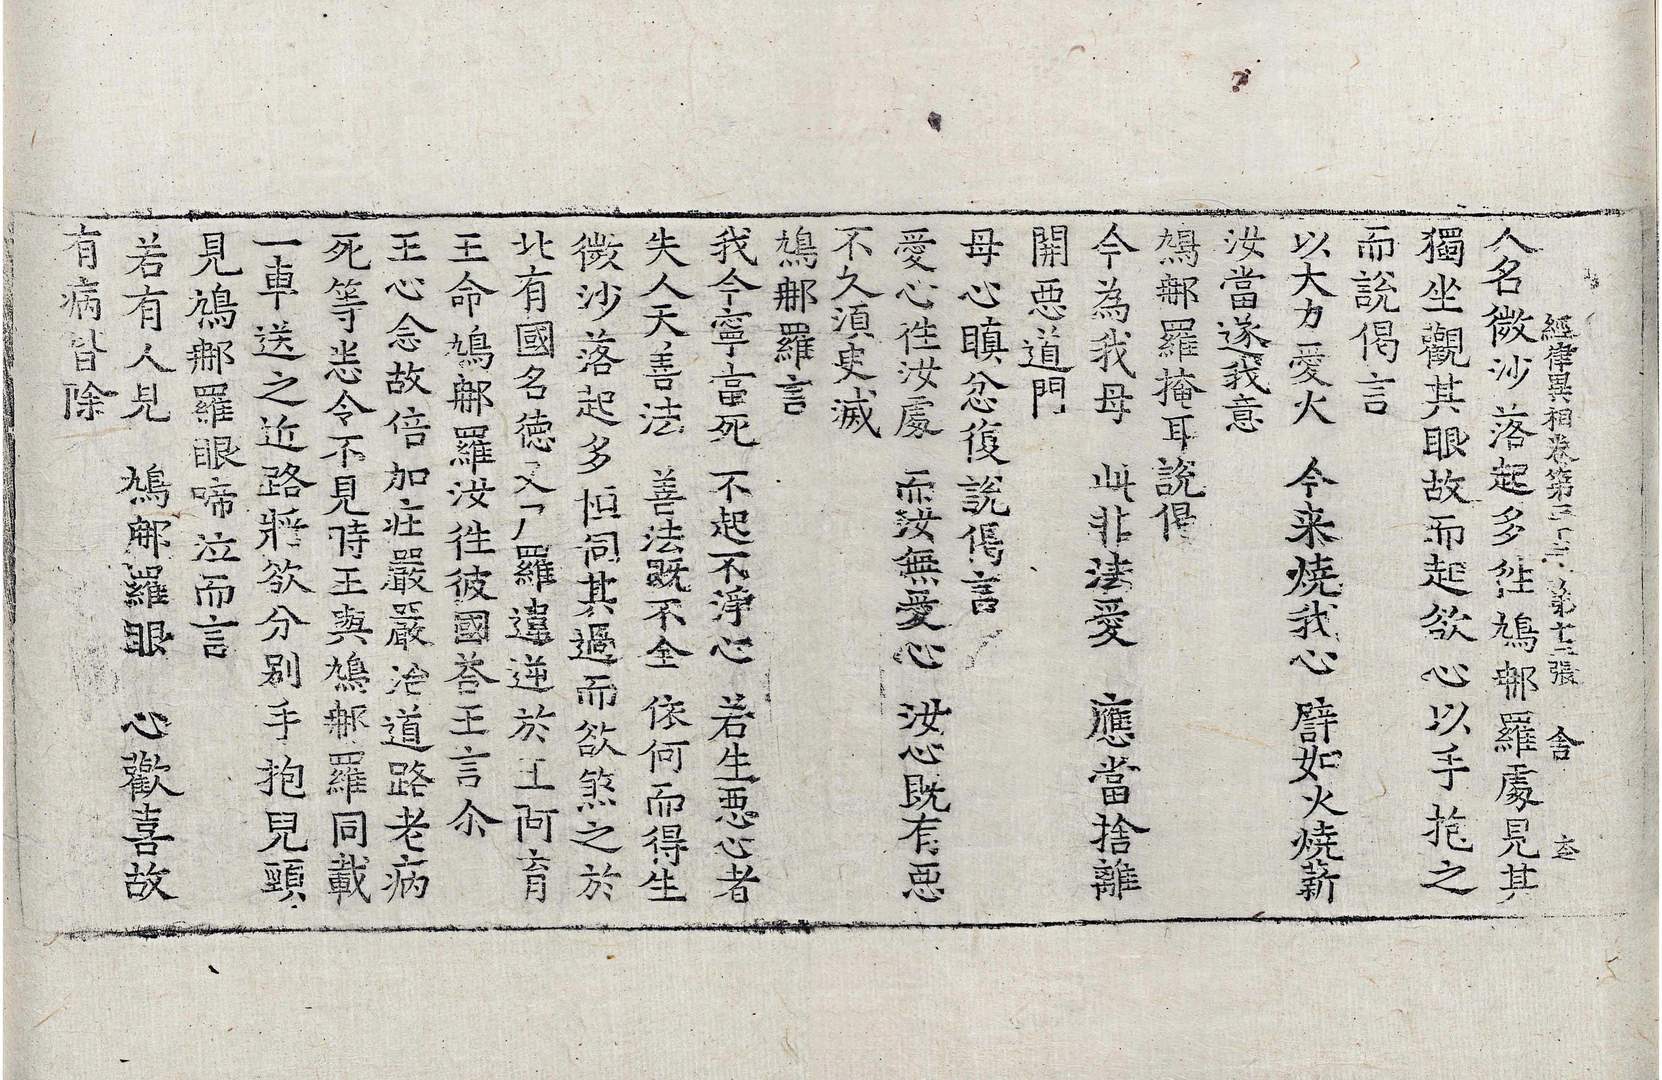 經律異相卷第三十三 第十二張 舍 㚐
人名微沙落起多徃鳩郍羅處見其
獨坐觀其眼故而起欲心以手抱之
而說偈言
以大力愛火 今来燒我心 譬如火燒薪
汝當遂我意
鳩郍羅掩耳說偈
今為我母 此非法愛 應當捨離
開惡道門
母心瞋忿復說偈言
愛心徃汝處 而汝無愛心 汝心既有惡
不久須臾滅
鳩郍羅言
我今寧當死 不起不淨心 若生惡心者
失人天善法 善法既不全 依何而得生
微沙落起多恒伺其過而欲煞之於
北有國名德叉尸羅違逆於王阿育
王命鳩郍羅汝徃彼國荅王言尒
王心念故倍加庄嚴嚴治道路老病
死等悉令不見時王與鳩郍羅同載
一車送之近路將欲分别手抱兒頸
見鳩郍羅眼啼泣而言
若有人見 鳩郍羅眼 心歡喜故
有病皆除